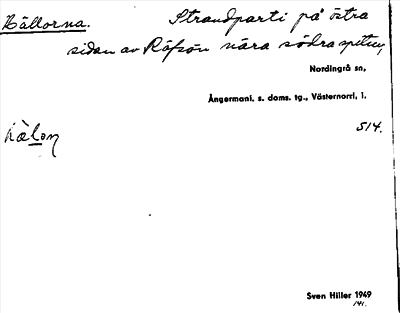 Bällorna. Strandparti på östra
sidan av Råfsön nära södra spetsen,
Nordingrå sn,
Ångermanl. s. doms. tg., Västernorrl, l.
514.
Sven Hiller 1949
141.